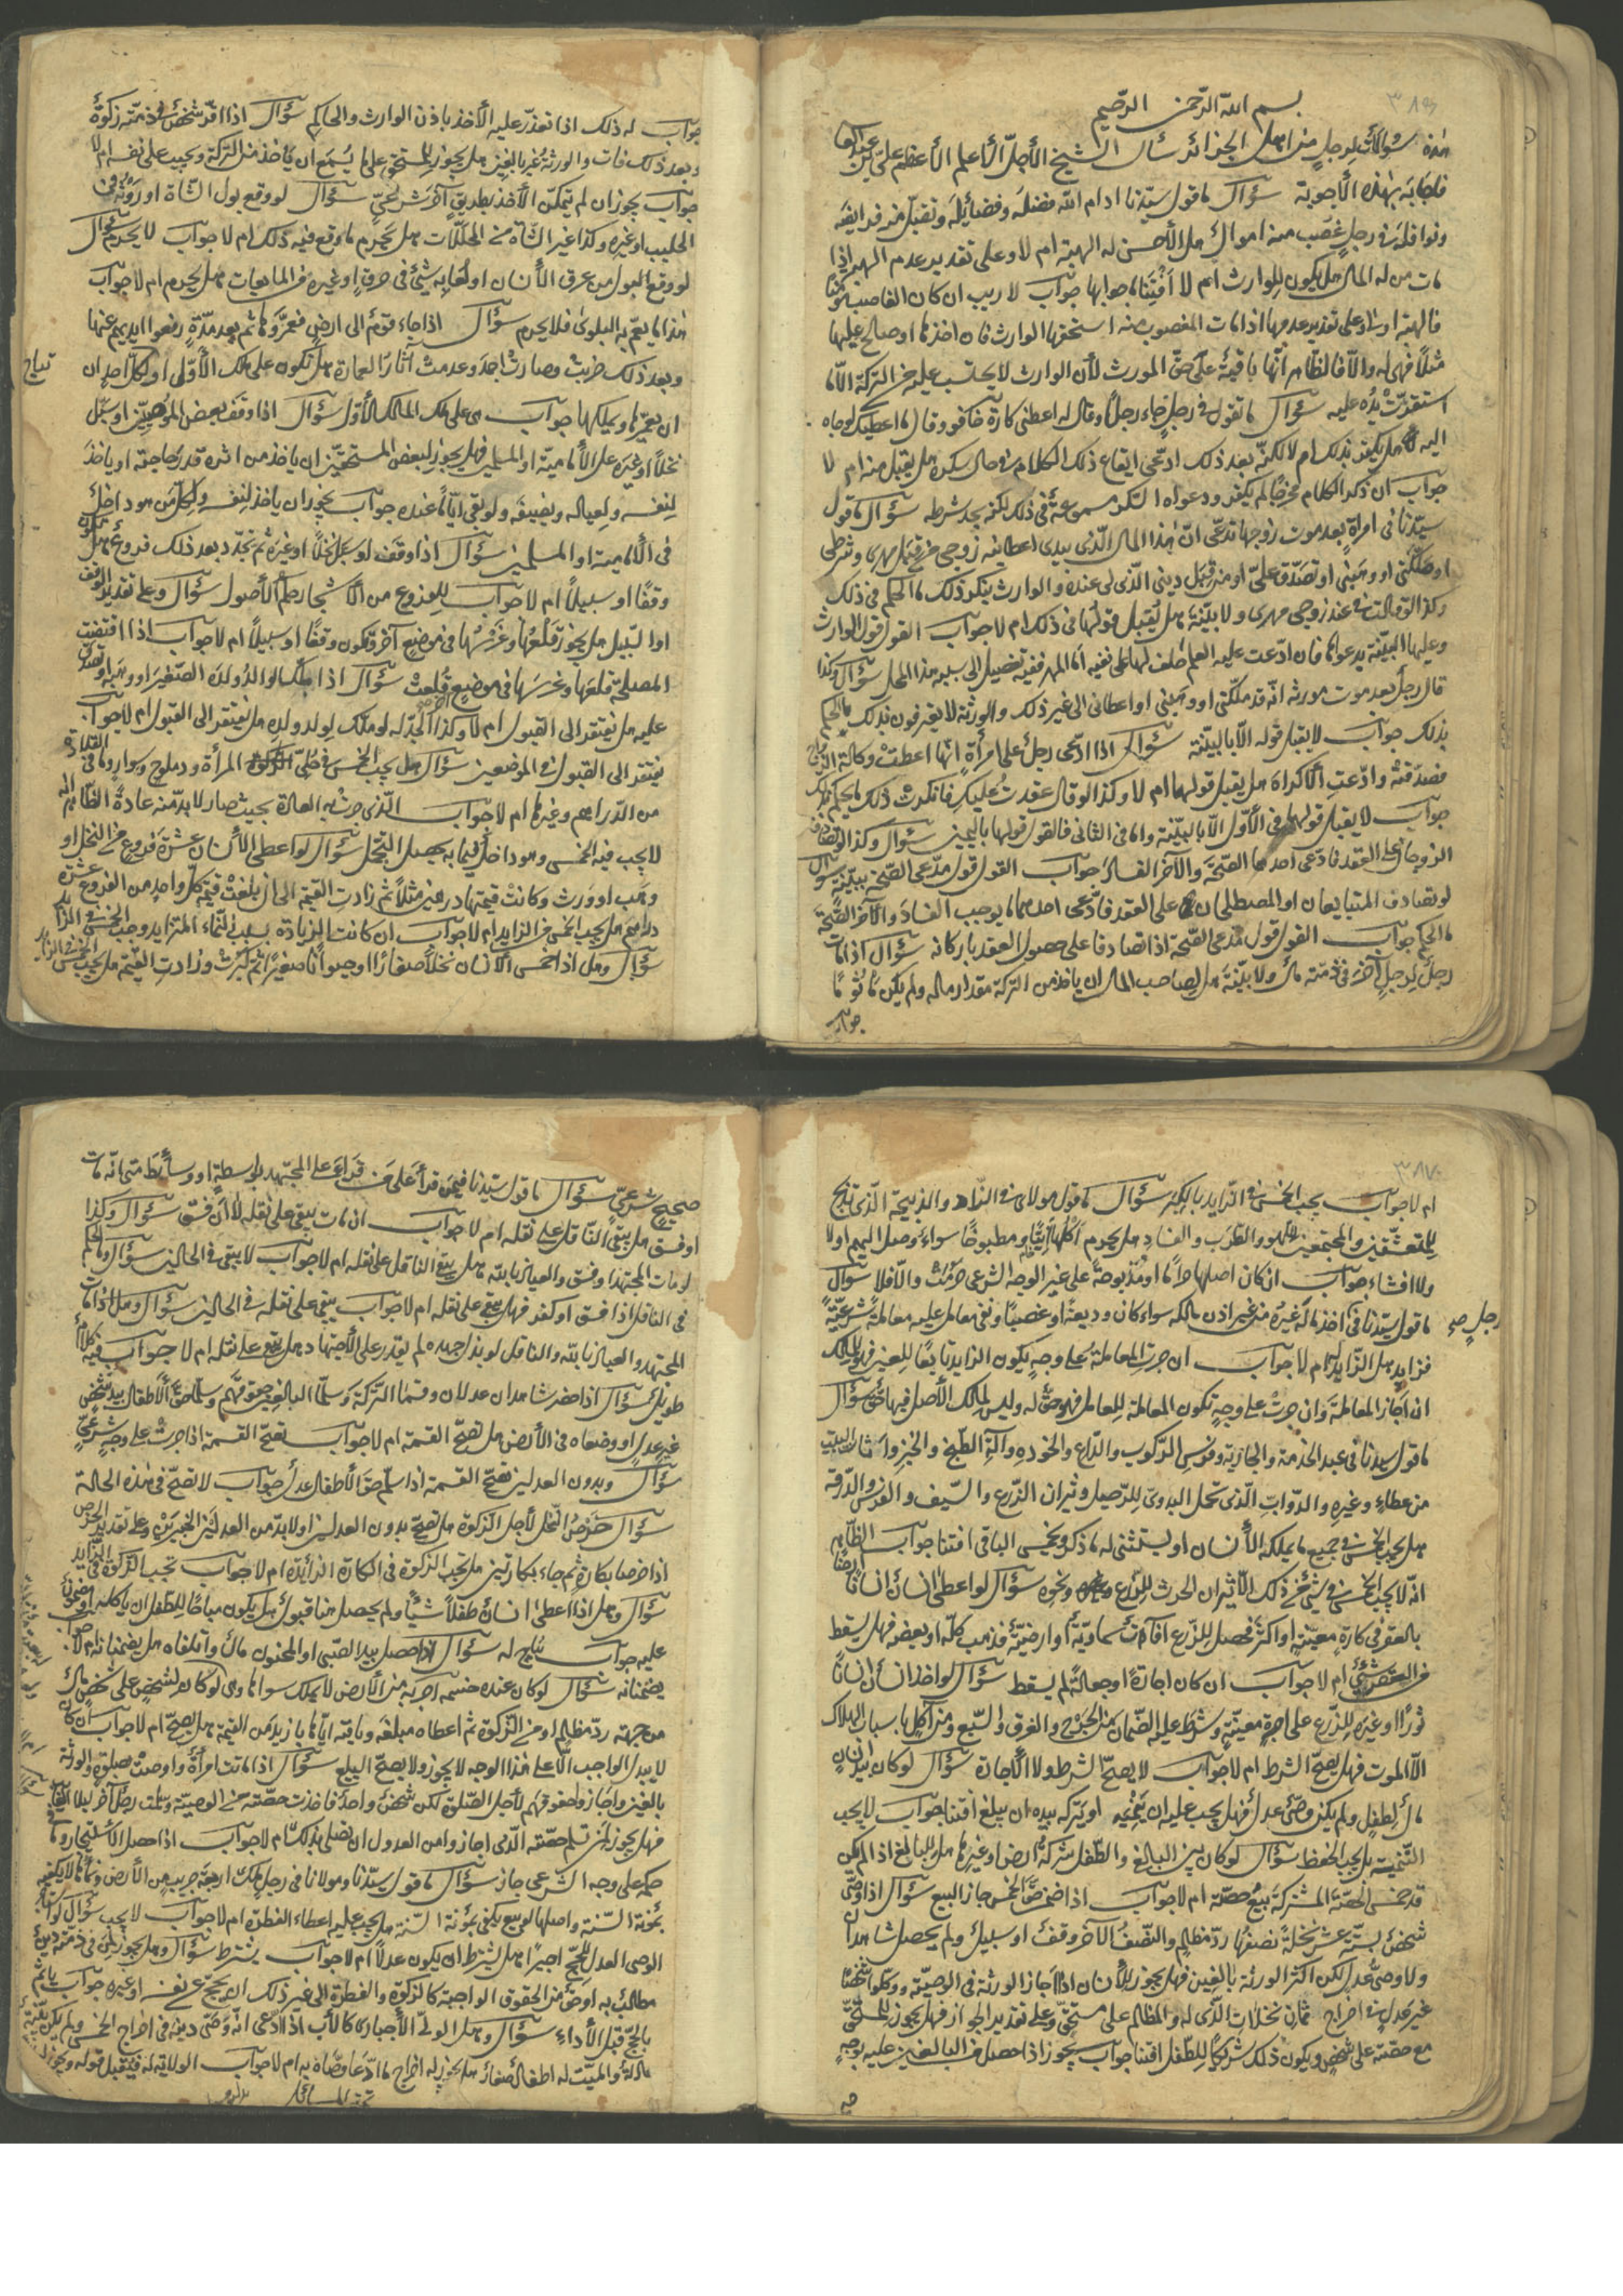 بسم الله الرّحمن الرّحيم
هذه سؤالات لرجل من اهل الجزائر سأل الشيخ الأجلّ الأعلم الأعظم علي بن عبد العا
فاجابه بهذه الأجوبة سؤال ما قول سيّدنا ادام الله فضله وفضائله وتقبّل من فرايضه
ونوافله في رجل غصب منه اموال هل الأحسن له الهبة ام لا وعلى تقدير عدم الهبة اذا
مات من له المال هل يكون للوارث ام لا افتنا جوابها جواب لا ريب ان كان الغاصب
فالهبة اولى وعلى تقدير عدمها اذا مات المغصوب منه استحقها الوارث فان اخذها او صالح عليها
مثلاً فهي له والّا فالظاهر انّها باقية على حقّ المورث لأن الوارث لا يحتسب عليه من التركة الّا ما
استقرّت يده عليه سؤال ما تقول في رجل جاء رجلاً وقال له اعطني كارة فكفر وقال ما اعطيك لو جاء
اليه هل يكفر بذلك ام لا لكنّه بعد ذلك ادّعى ايقاع ذلك الكلام في حال سكره هل يقبل منه ام لا
جواب ان ذكر الكلام لم يكفر ودعواه السكر مسموعة في ذلك لكنه بحد شربه سؤال ما قول
سيّدنا في امرأة بعد موت زوجها تدّعي انّ هذا المال الّذي بيدي اعطانيه زوجي من قبل مهري وشرطي
او ملّكني او وهبني او تصدّق عليّ او من قبل ديني الّذي لي عنده والوارث ينكر ذلك ما الحكم في ذلك
وكذا لو قالت عند زوجي مهري ولا بيّنة هل يقبل قولها في ذلك ام لا جواب القول قول الوارث
وعليها البيّنة بدعواها فان ادّعت عليه العلم حلف لها على نفيه امّا المهر ففيه تفصيل ليس هذا المحل سؤال وكذا
قال رجل بعد موت مورثه انّه قد ملّكني او وهبني او اعطاني الى غير ذلك والورثة لا يعترفون بذلك ما الحكم
بذلك جواب لا يقبل قوله الّا بالبيّنة سؤال اذا ادّعى رجل على امرأة انّها اعطت وكالة
فصدّقته وادّعت الأكراه هل يقبل قولها ام لا وكذا لو قال عقدت عليك فانكرت ذلك ما يحكم
جواب لا يقبل قولها في الأوّل الّا بالبيّنة واما في الثاني فالقول قولها باليمين سؤال وكذا لو تصادف
الزوجان على العقد فادّعى احدهما الصّحّة والآخر الفساد جواب القول قول مدّعي الصّحّة بيمينه سؤال
لو تصادف المتبايعان او المصطلحان على العقد فادّعى احدهما ما يوجب الفساد والآخر الصّحّة
ما الحكم جواب القول قول مدعي الصّحّة اذا تصادقا على حصول العقد باركانه سؤال اذا مات
رجل لرجل آخر في ذمّته مال ولا بيّنة هل لصاحب المال ان ياخذ من التركة مقدار ماله ولم يكن
جواب
جواب له ذلك اذا تعذّر عليه الأخذ باذن الوارث والحاكم سؤال اذا اقرّ شخص في ذمّته زكوة
وبعد ذلك مات والورثة غير بالغين هل يجوز للمستحق على ما يُسمع ان ياخذ من التركة ويجب على نفسه ام لا
جواب يجوز ان لم يتمكّن الأخذ بطريق آخر شرعيّ سؤال لو وقع بول الشّاة او روثها في
الحليب او غيره وكذا غير الشّاة من المحلّلات هل يحرم ما وقع فيه ذلك ام لا جواب لا يحرم سؤال
لو وقع البول من عرق الأنسان او لعابه شيئ في مرق او غيره من المايعات هل يحرم ام لا جواب
هذا ما يعمّ به البلوى فلا يحرم سؤال اذا جاء قوم الى ارض فعمّروها ثم بعد مدّة رفعوا ايديهم عنها
وبعد ذلك خربت وصارت اجمة وعدمت آثار العمارة هل تكون على ملك الأوّل او لكلّ احد ان
ان يعمّرها ويملكها جواب هي على ملك المالك الأوّل سؤال اذا وقف بعض المؤمنين او سبّل
نخلاً او شجرة على الأماميّة او المسلمين فهل يجوز لبعض المستحقّين ان ياخذ من ثمره قدر حاجته او ياخذ
لنفسه ولعياله وضيفه ولو بقي ايّاماً عنده جواب يجوز ان ياخذ لنفسه ولكلّ من هو داخل
في الأماميّة او المسلمين سؤال اذا وقف او سبّل نخلاً او غيره ثم تجدّد بعد ذلك فروع هل تكون
وقفاً او سبيلاً ام لا جواب للفروع من الأشجار حكم الأصول سؤال وعلى تقدير الوقف
او السّبيل هل يجوز قلعها وغرسها في موضع آخر وتكون وقفاً او سبيلاً ام لا جواب اذا اقتضت
المصلحة قلعها وغرسها في موضع قلعت سؤال اذا ملّك الوالد ولده الصّغير او وهبه او تصدّق
عليه هل يفتقر الى القبول ام لا وكذا الجدّ له لو ملّك لولد ولده هل يفتقر الى القبول ام لا جواب
يفتقر الى القبول في الموضعين سؤال هل يجب الخمس في حُليّ المرأة ودملج وسوار وما في القلادة
من الدّراهم وغيرها ام لا جواب الّذي جرت به العادة بحيث صار لا بدّ منه عادةً الظّاهر انه
لا يجب فيه الخمس وهو داخل فيما به يحصل التجمّل سؤال لو اعطى الأنسان عشرة فروع من النخل او
وهب او ورث وكانت قيمتها درهمين مثلاً ثم زادت القيمة الى ان بلغت قيمة كلّ واحد من الفروع عشرة
دراهم هل يجب الخمس في الزايد ام لا جواب ان كانت الزيادة بسبب النّماء المتزايد وجب الخمس في الزايد
سؤال وهل اذا خمّس الأنسان نخلاً صغاراً او حيواناً صغيراً ثم كبرت وزادت القيمة هل يجب الخمس في الزايد
ام لا جواب يجب الخمس في الزايد بالكبر سؤال ما قول مولاي في الزاد والذبيحة الّتي تذبح
للمتعشّقين والمجتمعين للّهو والطّرب والفساد هل يحرم اكلها نيّاً ومطبوخاً سواء وصل اليهم اولا
ولا افشاء جواب ان كان اصلها حراماً او مذبوحة على غير الوجه الشرعي حرمت والّا فلا سؤال
ما قول سيّدنا في اخذ مال غيره من غير اذن مالكه سواء كان وديعةً او غصباً وفي معامل عليه معاملة شرعيّة
رجل صح
فزايد هل الزّايد له ام لا جواب ان جرت المعاملة على وجه يكون الزايد تابعاً للعين فهو للمالك
ان اجاز المعاملة وان جرت على وجه تكون المعاملة للعامل فهو حقّ له وليس لمالك الأصل فيها حق سؤال
ما قول سيّدنا في عبد الخدمة والجارية وفرس الرّكوب والدّرع والخوذه وآلة الطّبخ والخبز واثاث البيت
من عطاء وغيره والدّواب الّتي تحمل البدويّ للرّحيل وثيران الزّرع والسّيف والقوس والدّرقة
هل يجب الخمس في جميع ما يملكه الأنسان او يستثنى له ما ذكر ويخمس الباقي افتنا جواب الظّاهر
انّه لا يجب الخمس في شيئ من ذلك الّا ثيران الحرث للزّرع ونحوه سؤال لو اعطى انسان انساناً ارضاً
بالعقر في كارة معيّنة او اكثر فحصل للزّرع آفات سماويّة او ارضيّة فذهب كلّه او بعضه فهل يسقط
من العقر شيئ ام لا جواب ان كان اجارةً او جعالةً لم يسقط سؤال لو اخذ انسان من انسان
ثوراً او غيره للزّرع على اجرة معيّنة وشرط عليه الضّمان من الجرح والغرق والسّبع ومن كل اسباب الهلاك
الّا الموت فهل يصحّ الشرط ام لا جواب لا يصحّ الشرط ولا الأجارة سؤال لو كان بيد انسان
مال لطفل ولم يكن وصيّ عدل فهل يجب عليه ان ينميه او يتركه بيده ان يبلغ افتنا جواب لا يجب
التّنمية بل يجب الحفظ سؤال لو كان بين البالغ والطّفل شركة ارض او غيرها هل للبالغ اذا لم يكن
قد خمس الحصّة المشتركة بيع حصّته ام لا جواب اذا ضمن حقّ الخمس جاز البيع سؤال اذا وصّى
شخص بستّة عشر نخلةً نصفها ردّ مظالم والنّصف الآخر وقف او سبيل ولم يحصل شاهدا
ولا وصيّ عدل لكن اكثر الورثة بالغين فهل يجوز للأنسان اذا اجاز الورثة في الوصيّة ووكّلوا شخصاً
غير عدل في اخراج ثمان نخلات الّذي له والمظالم على مستحقّ وعلى تقدير الجواز فهل يجوز للمستحقّ
بيع حصّته على شخص ويكون ذلك شريكاً للطّفل افتنا جواب يجوز اذا حصل من البالغين عليه بوجه
صحيح شرعيّ سؤال ما قول سيّدنا فيمن قرأ على من قراء على المجتهد بواسطة او وسائط متى انّه مات
او فسق هل يبقى النّاقل على نقله ام لا جواب ان مات يبقى على نقله لا ان فسق سؤال وكذا
لو مات المجتهد او فسق والعياذ بالله هل يبقى الناقل على نقله ام لا جواب لا يبقى في الحالين سؤال وما الحكم
في الناقل اذا فسق او كفر فهل يبقى على نقله ام لا جواب يبقى على نقله في الحالين سؤال وهل اذا مات
المجتهد والعياذ بالله والناقل لو بذل جهده لم يقدر على الأجتهاد هل يبقى على نقله ام لا جواب فيه كلام
طويل سؤال اذا حضر شاهدان عدلان وقسما التّركة وسلّما البالغين حقوقهم وسلّما حقّ الأطفال بيد شخص
غير عدل او وضعاه في الأرض هل تصحّ القسمة ام لا جواب تصحّ القسمة اذا جرت على وجه شرعيّ
سؤال وبدون العدلين تصحّ القسمة اذا سلّم حق الأطفال عدل جواب لا تصحّ في هذه الحالة
سؤال خرص النّخل لأجل الزّكوة هل تصحّ بدون العدلين او لا بدّ من العدلين الخبيرين وعلى تقدير الخرص
اذا خرصا بكارة ثم جاء بكارتين هل تجب الزكوة في الكارة الزائدة ام لا جواب تجب الزّكوة في الزايد
سؤال وهل اذا اعطى انسان طفلاً شيئاً ولم يحصل هنا قبول هل يكون مباحاً للطفل ان ياكله او مضمون
عليه جواب يباح له سؤال اذا حصل بيد الصّبي او المجنون مال واتلفاه هل يضمنانه ام لا جواب
يضمنانه سؤال لو كان عنده خمسة اجربة من الأرض لا يملك سواها وهي لو كان لشخص على شخص مال
من جهة ردّ مظالم او من الزّكوة ثم اعطاه مبلغه وبايته ايّاها بازيد من القيمة هل يصح ام لا جواب ان كان
لا يبدل الواجب الّا على هذا الوجه لا يجوز ولا يصحّ البيع سؤال اذا ماتت امرأة واوصت بصلوة والورثة
بالغين واجازوا حقوقهم لأجل الصّلوة لكن شخص واحد فاخذت حصّته من الوصيّة وسلّمت
فهل يجوز لمن تسلّم حصّته الّذي اجاز وامن العدول ان يصلي بذلك ام لا جواب اذا حصل الأستيجار
حكم على وجه الشّرعي جاز سؤال ما قول سيّدنا ومولانا في رجل ملك اربعة جريب من الأرض ونماها لا يكفيه
بمؤنة السّنة واصلها لو بيع يكفي بمؤنة السّنة هل يجب عليه اعطاء الفطرة ام لا جواب لا يجب سؤال
الوصي العدل للحجّ اجيراً هل يشترط ان يكون عدلاً ام لا جواب يشترط سؤال وهل يجوز لمن في ذمّته دين
مطالب به او حقّ من الحقوق الواجبة كالزكوة والفطرة الى غير ذلك ان يحجّ عن نفسه او غيره جواب ياثم
بالحجّ قبل الأداء سؤال وهل الوليّ الأجباري كالأب اذا ادّعى انّه وصّى دينه في اخراج الخمس ولم يكن بيّنة
عادلة والميّت له اطفال صغار هل يجوز له اخراج ما ادّعا وصّاه به ام لا جواب الولاية له فيقبل قوله ويجوز
تمت المسائل